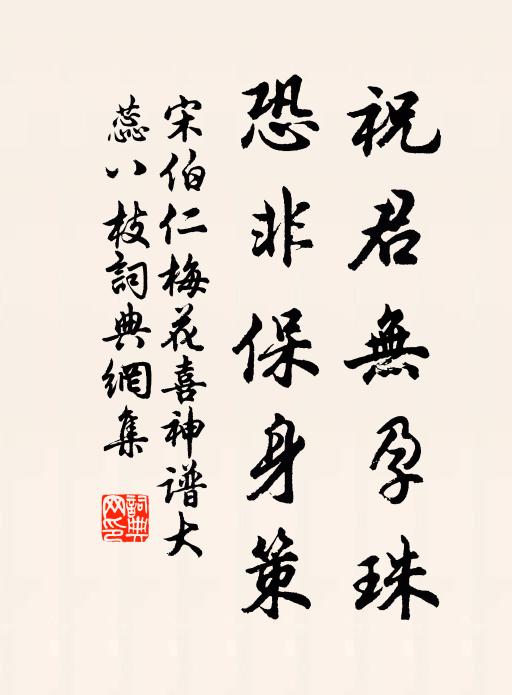 祝君無孕珠
恐非保身策
宋伯仁梅花喜神谱大
蕊八枝詞典網集
詞典网印